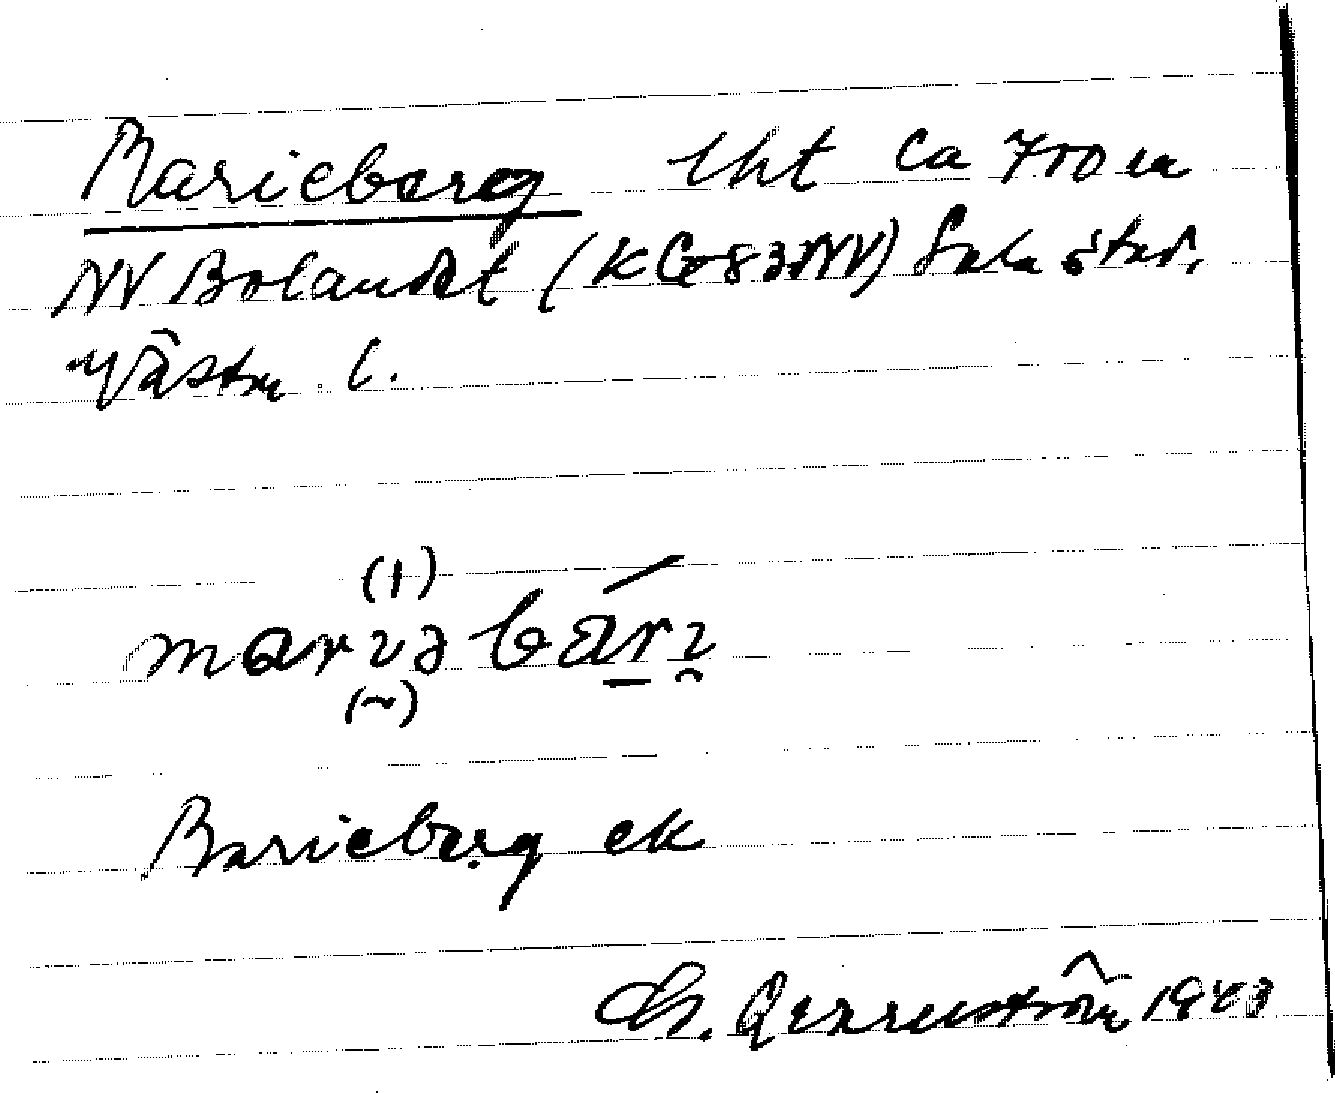 Marieberg lht ca 700 m
NV Bolandet (KG 83 NV) Sala stad,
Västm l.
(ı)
marıəbärı
(~)
Marieberg ek
1943